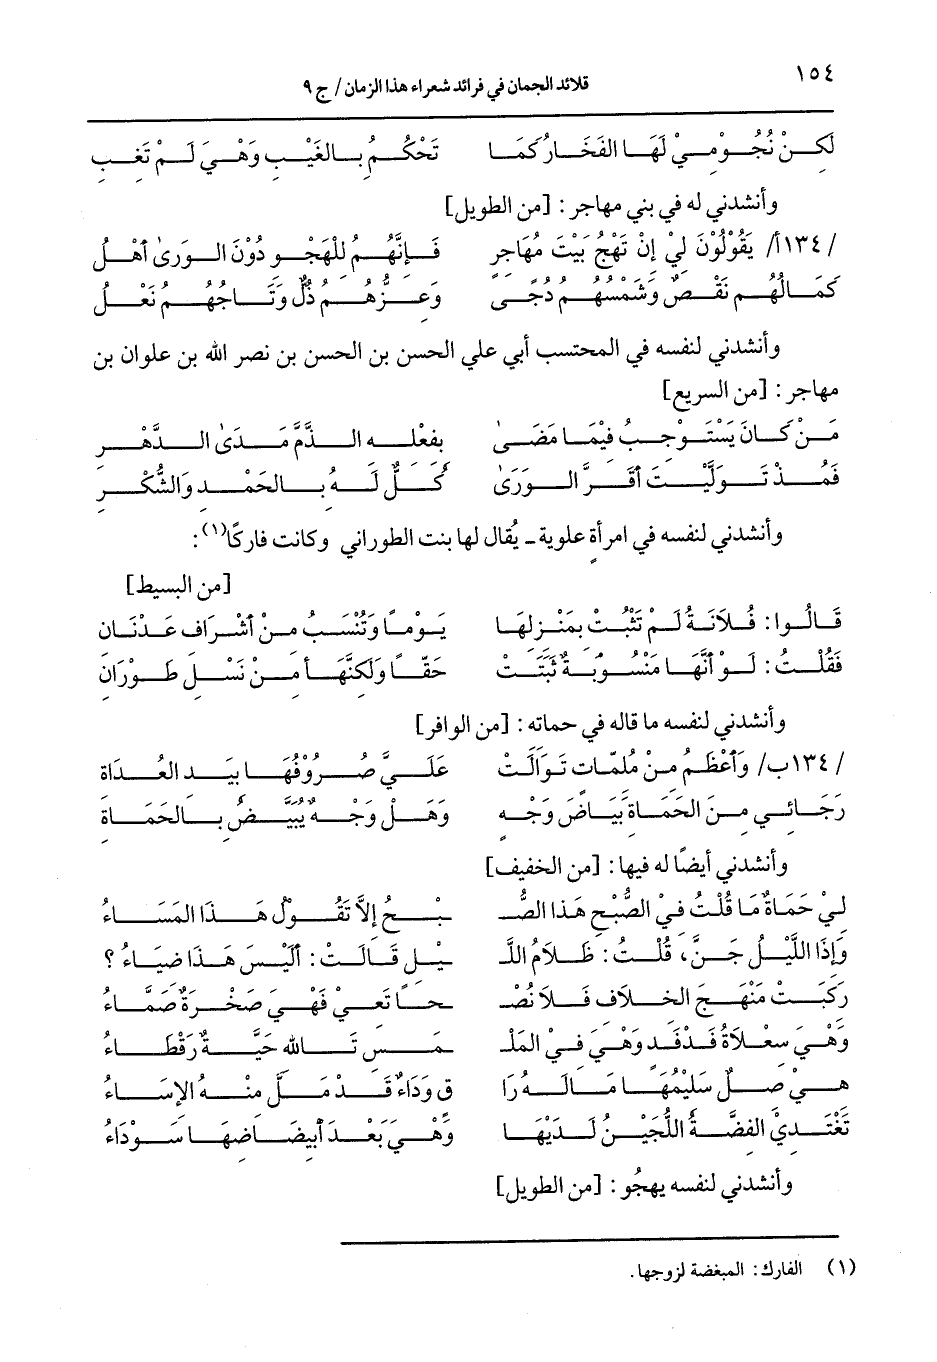 ١٥٤
قلائد الجمان في فرائد شعراء هذا الزمان/ ج ٩
لَكِنْ نُجُومِيْ لَهَا الفَخَارُ كَمَا تَحْكُمُ بِالغَيْبِ وَهْيَ لَمْ تَغِبِ
وأنشدني له في بني مهاجر: [من الطويل]
/١٣٤أ/ يَقُوْلُوْنَ لِيْ إِنْ تَهْجُ بَيْتَ مُهَاجِرٍ فَإِنَّهُمُ لِلْهَجْوِ دُوْنَ الوَرىٰ أهْلُ
كَمَالُهُمِ نَقْصٌ وَشَمْسُهُمِ دُجًى وَعِزُّهُمِ ذُلٌّ وَتَاجُهُمُ نَعْلُ
وأنشدني لنفسه في المحتسب أبي علي الحسن بن الحسن بن نصر الله بن علوان بن
مهاجر: [من السريع]
مَنْ كَانَ يَسْتَوْجِبُ فِيْمَا مَضَىٰ بِفِعْلِهِ الذَّمَّ مَدَىٰ الدَّهْرِ
فَمُذْ تَوَلَّيْتَ أقَرَّ الوَرَىٰ كُلٌّ لَهُ بِالحَمْدِ وَالشُّكْرِ
وأنشدني لنفسه في امرأةٍ علوية ـ يُقال لها بنت الطوراني وكانت فاركًا(١):
[من البسيط]
قَالُوا: فُلاَنَةُ لَمْ تَثْبُتْ بِمَنْزِلِهَا يَوْمًا وَتُنْسَبُ مِنْ أشْرَافِ عَدْنَانِ
فَقُلْتُ: لَوْ أنَّهَا مَنْسُوبَةٌ ثَبَتَتْ حَقًّا وَلَكِنَّهَا مِنْ نَسْلِ طَوْرَانِ
وأنشدني لنفسه ما قاله في حماته: [من الوافر]
/١٣٤ب/ وَأعْظَمُ مِنْ مُلِمَّاتٍ تَوَالَتْ عَلَيَّ صُرُوْفُهَا بِيَدِ العُدَاةِ
رَجَائِي مِنَ الحَمَاةِ بَيَاضَ وَجْهٍ وَهَلْ وَجْهٌ يُبَيَّضُ بِالحَمَاةِ
وأنشدني أيضًا له فيها: [من الخفيف]
لِيْ حَمَاةٌ مَا قُلْتُ فِيْ الصُّبْحِ هَذَا الصُّـ ـبْحُ إلاَّ تَقُوْلُ هَذَا المَسَاءُ
وَإِذَا اللَّيْلُ جَنَّ، قُلْتُ: ظَلاَمُ اللَّـ ـيْلِ قَالَتْ: ألَيْسَ هَذَا ضِيَاءُ؟
رَكِبَتْ مَنْهَجَ الخِلاَفِ فَلاَ نُصْـ ـحًا تَعِي فَهْيَ صَخْرَةٌ صَمَّاءُ
وَهْيَ سِعْلاَةُ فَدْفَدٍ وَهْيَ فِيْ المَلْـ ـمَسِ تَاللهِ حَيَّةٌ رَقْطَاءُ
هِيَ صِلٌّ سَلِيْمُهَا مَا لَهُ رَا قٍ وَدَاءٌ قَدْ مَلَّ مِنْهُ الإِسَاءُ
تَغْتَدِيْ الفِضَّةُ اللُّجَيْنُ لَدَيْهَا وَهْيَ بَعْدَ ابْيِضَاضِهَا سَوْدَاءُ
وأنشدني لنفسه يهجُو: [من الطويل]
(١) الفارك: المبغضة لزوجها.